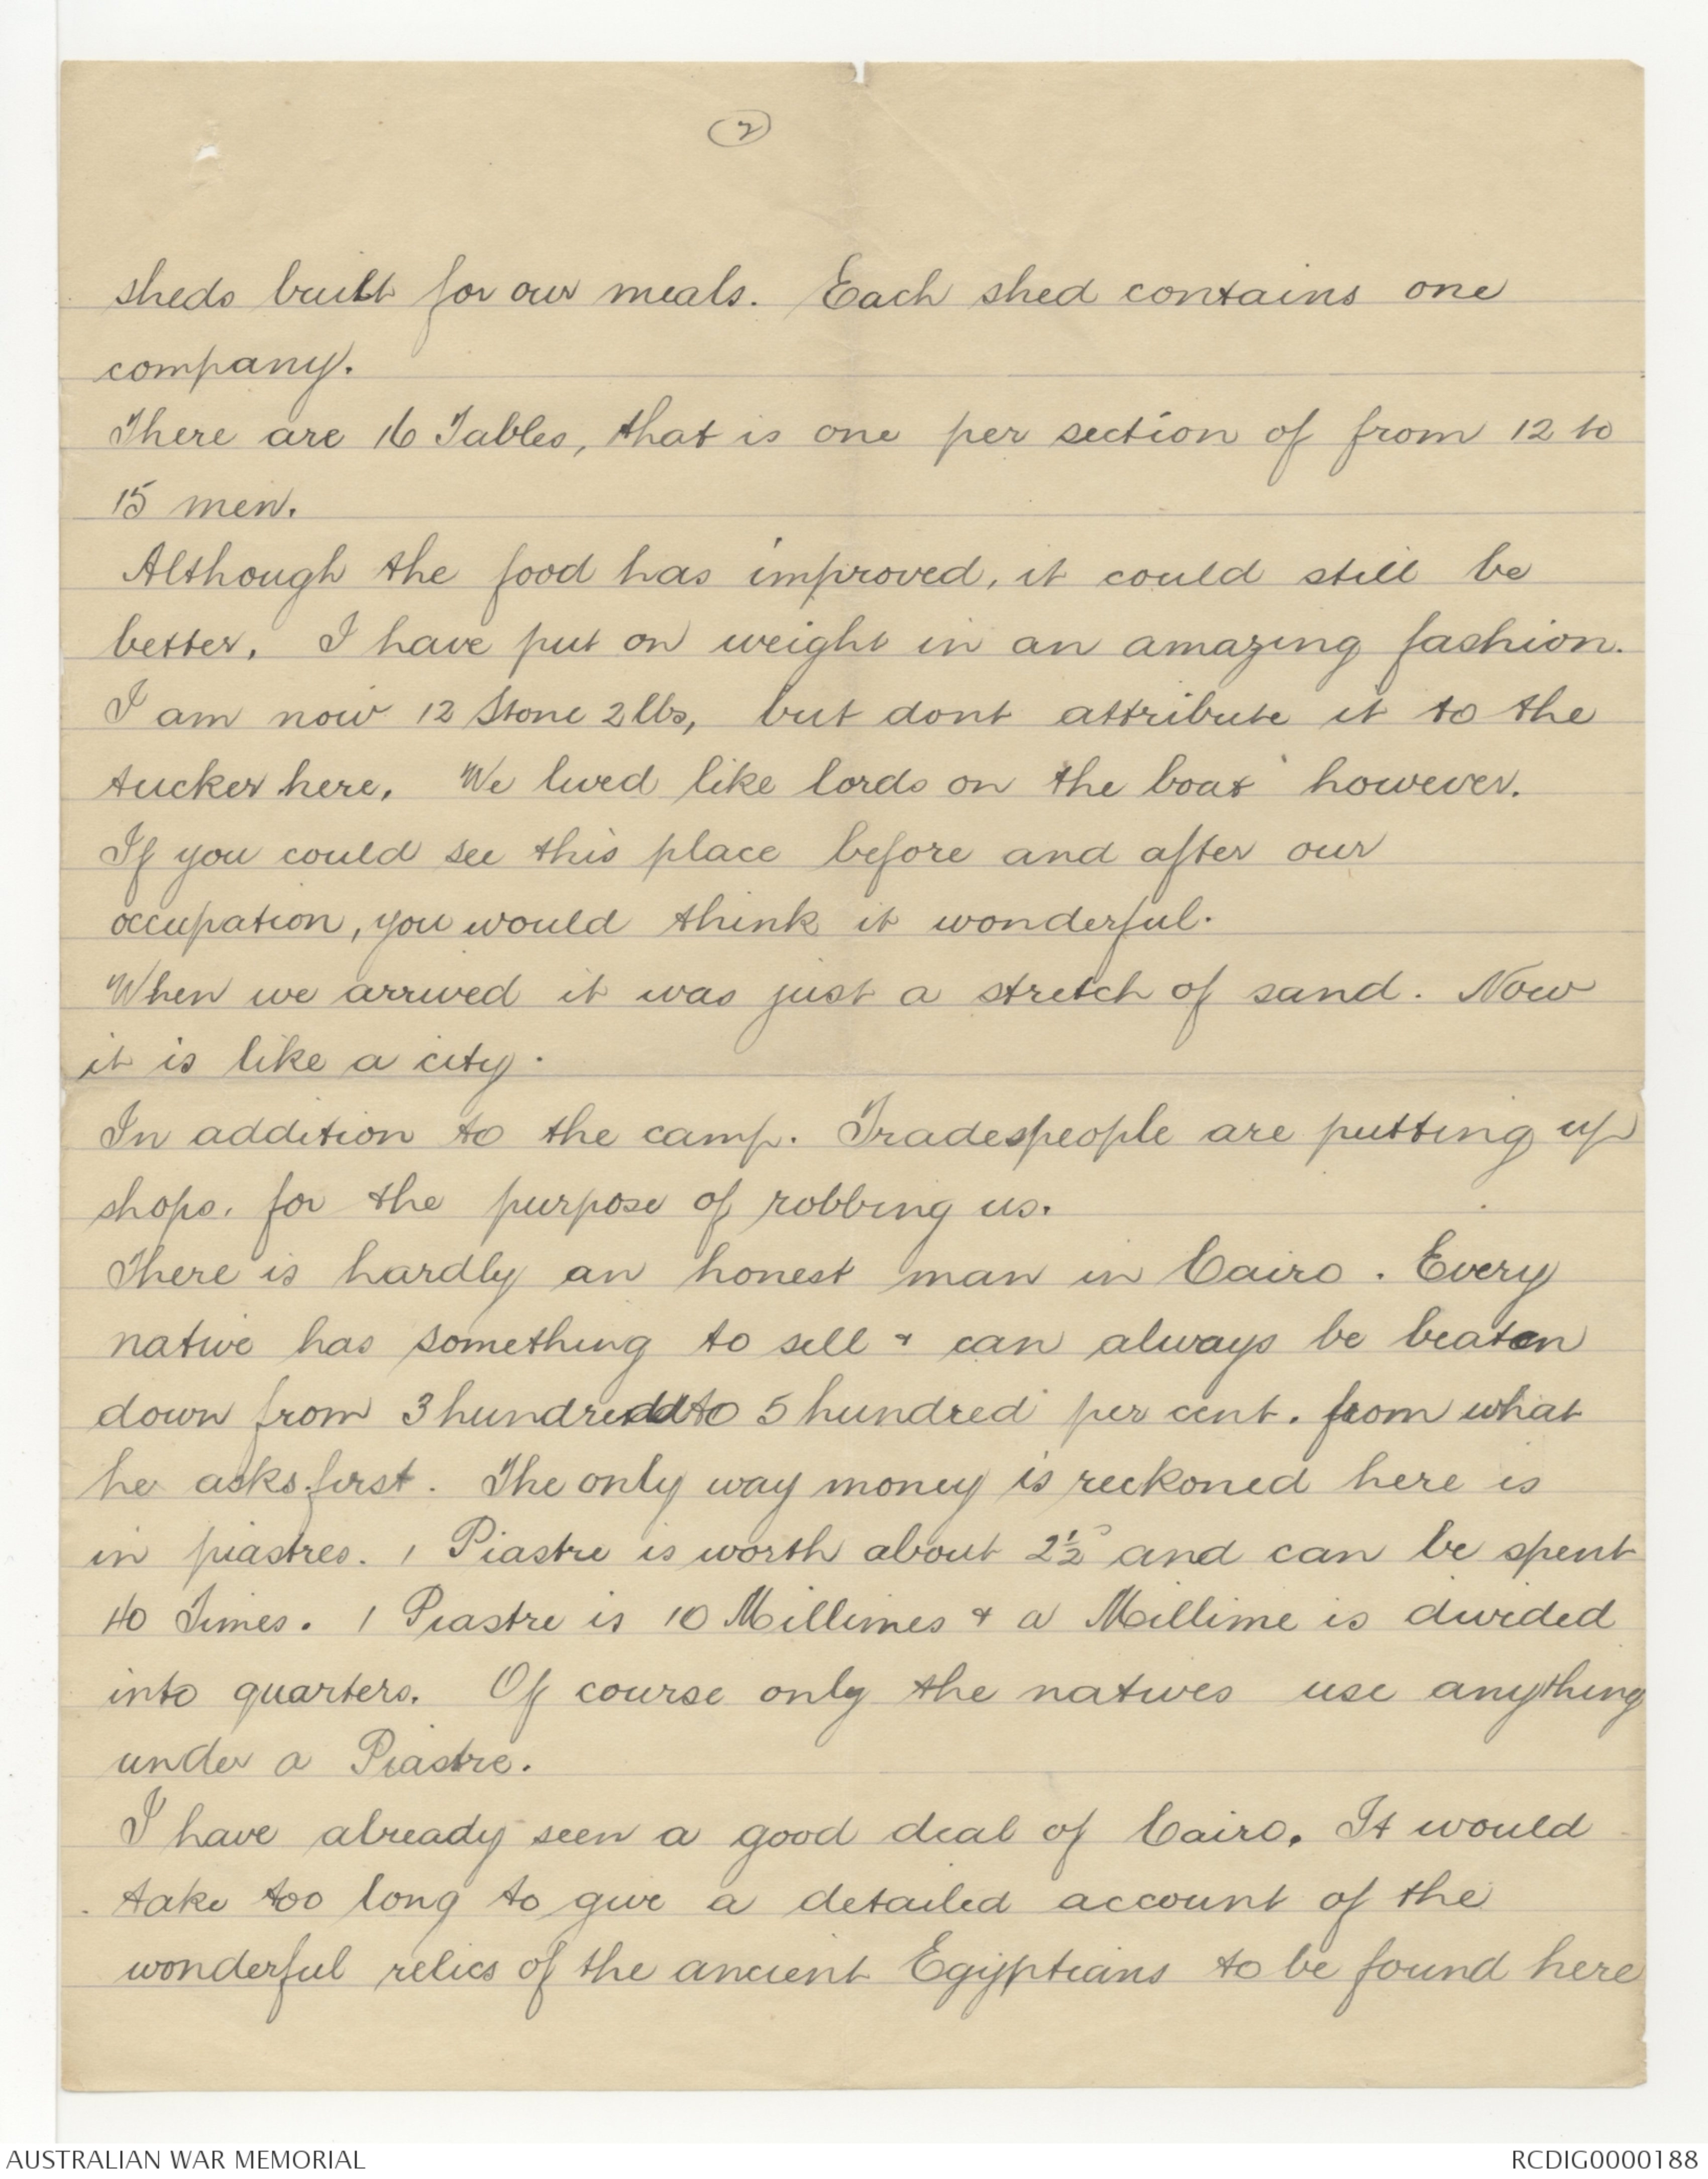 2
sheds built for our meals. Each shed contains one
company.
There are 16 Tables, that is one per section of from 12 to
15 men.
Although the food has improved, it could still be
better. I have put on weight in an amazing fashion.
I am now 12 Stone 2 lbs, but dont attribute it to the
tucker here. We lived like lords on the boat however.
If you could see this place before and after our
occupation, you would think it wonderful.
When we arrived it was just a stretch of sand. Now
it is like a city.
In addition to the camp. Tradespeople are putting up
shops. for the purpose of robbing us.
There is hardly an honest man in Cairo. Every
native has something to sell & can always be beaten
down from 3 hundred to 5 hundred per cent. from what
he asks first. The only way money is reckoned here is
in piastres. 1 Piastre is worth about 2½ and can be spent
40 Times. 1 Piastre is 10 Millimes & a Millime is divided
into quarters. Of course only the natives use anything
under a Piastre.
I have already seen a good deal of Cairo. It would
take too long to give a detailed account of the
wonderful relics of the ancient Egyptians to be found here
AUSTRALIAN WAR MEMORIAL
RCDIG0000188